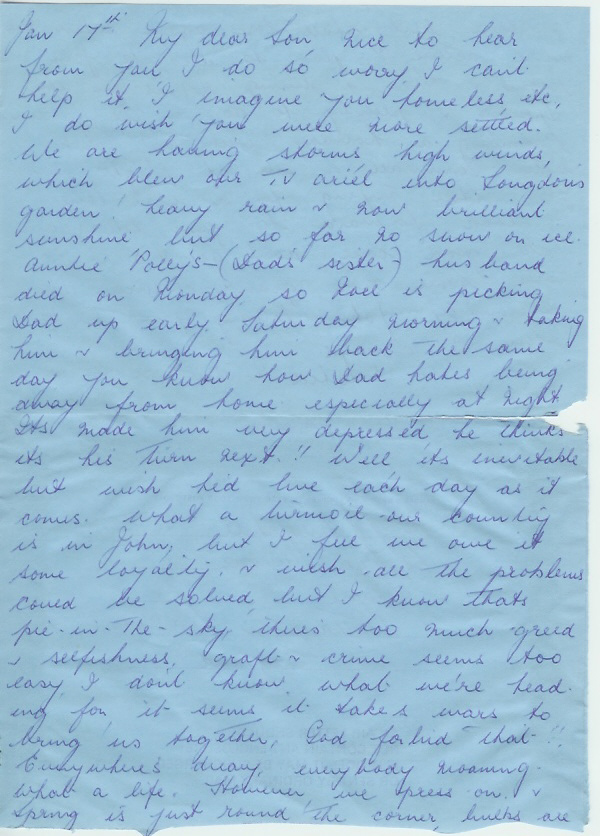 Jan 17th My dear Son, nice to hear
from you I do so worry, I can't
help it, I imagine you homeless etc,
I do wish you were more settled.
We are having storms high winds,
which blew our TV ariel into Longdons
garden! heavy rain & now brilliant
sunshine but so far no snow or ice.
Auntie Polly's - (Dad's sister) husband
died on Monday, so Noel is picking
Dad up early Saturday morning & taking
him & bringing him back the same
day you know how Dad hates being
away from home especially at night
Its made him very depressed he thinks
its his turn next.!! Well its inevitable
but wish he'd live each day as it
comes. What a turmoil our country
is in John, but I feel we owe it
some loyality, & wish all the problems
could be solved but I know thats
pie-in-the-sky, there's too much greed
& selfishness, graft & crime seems too
easy, I don't know what we're head-
ing for it seems it takes wars to
bring us together, God forbid that!!
Everywhere's dreary, everybody moaning.
what a life. However we press on, &
Spring is just round the corner, are